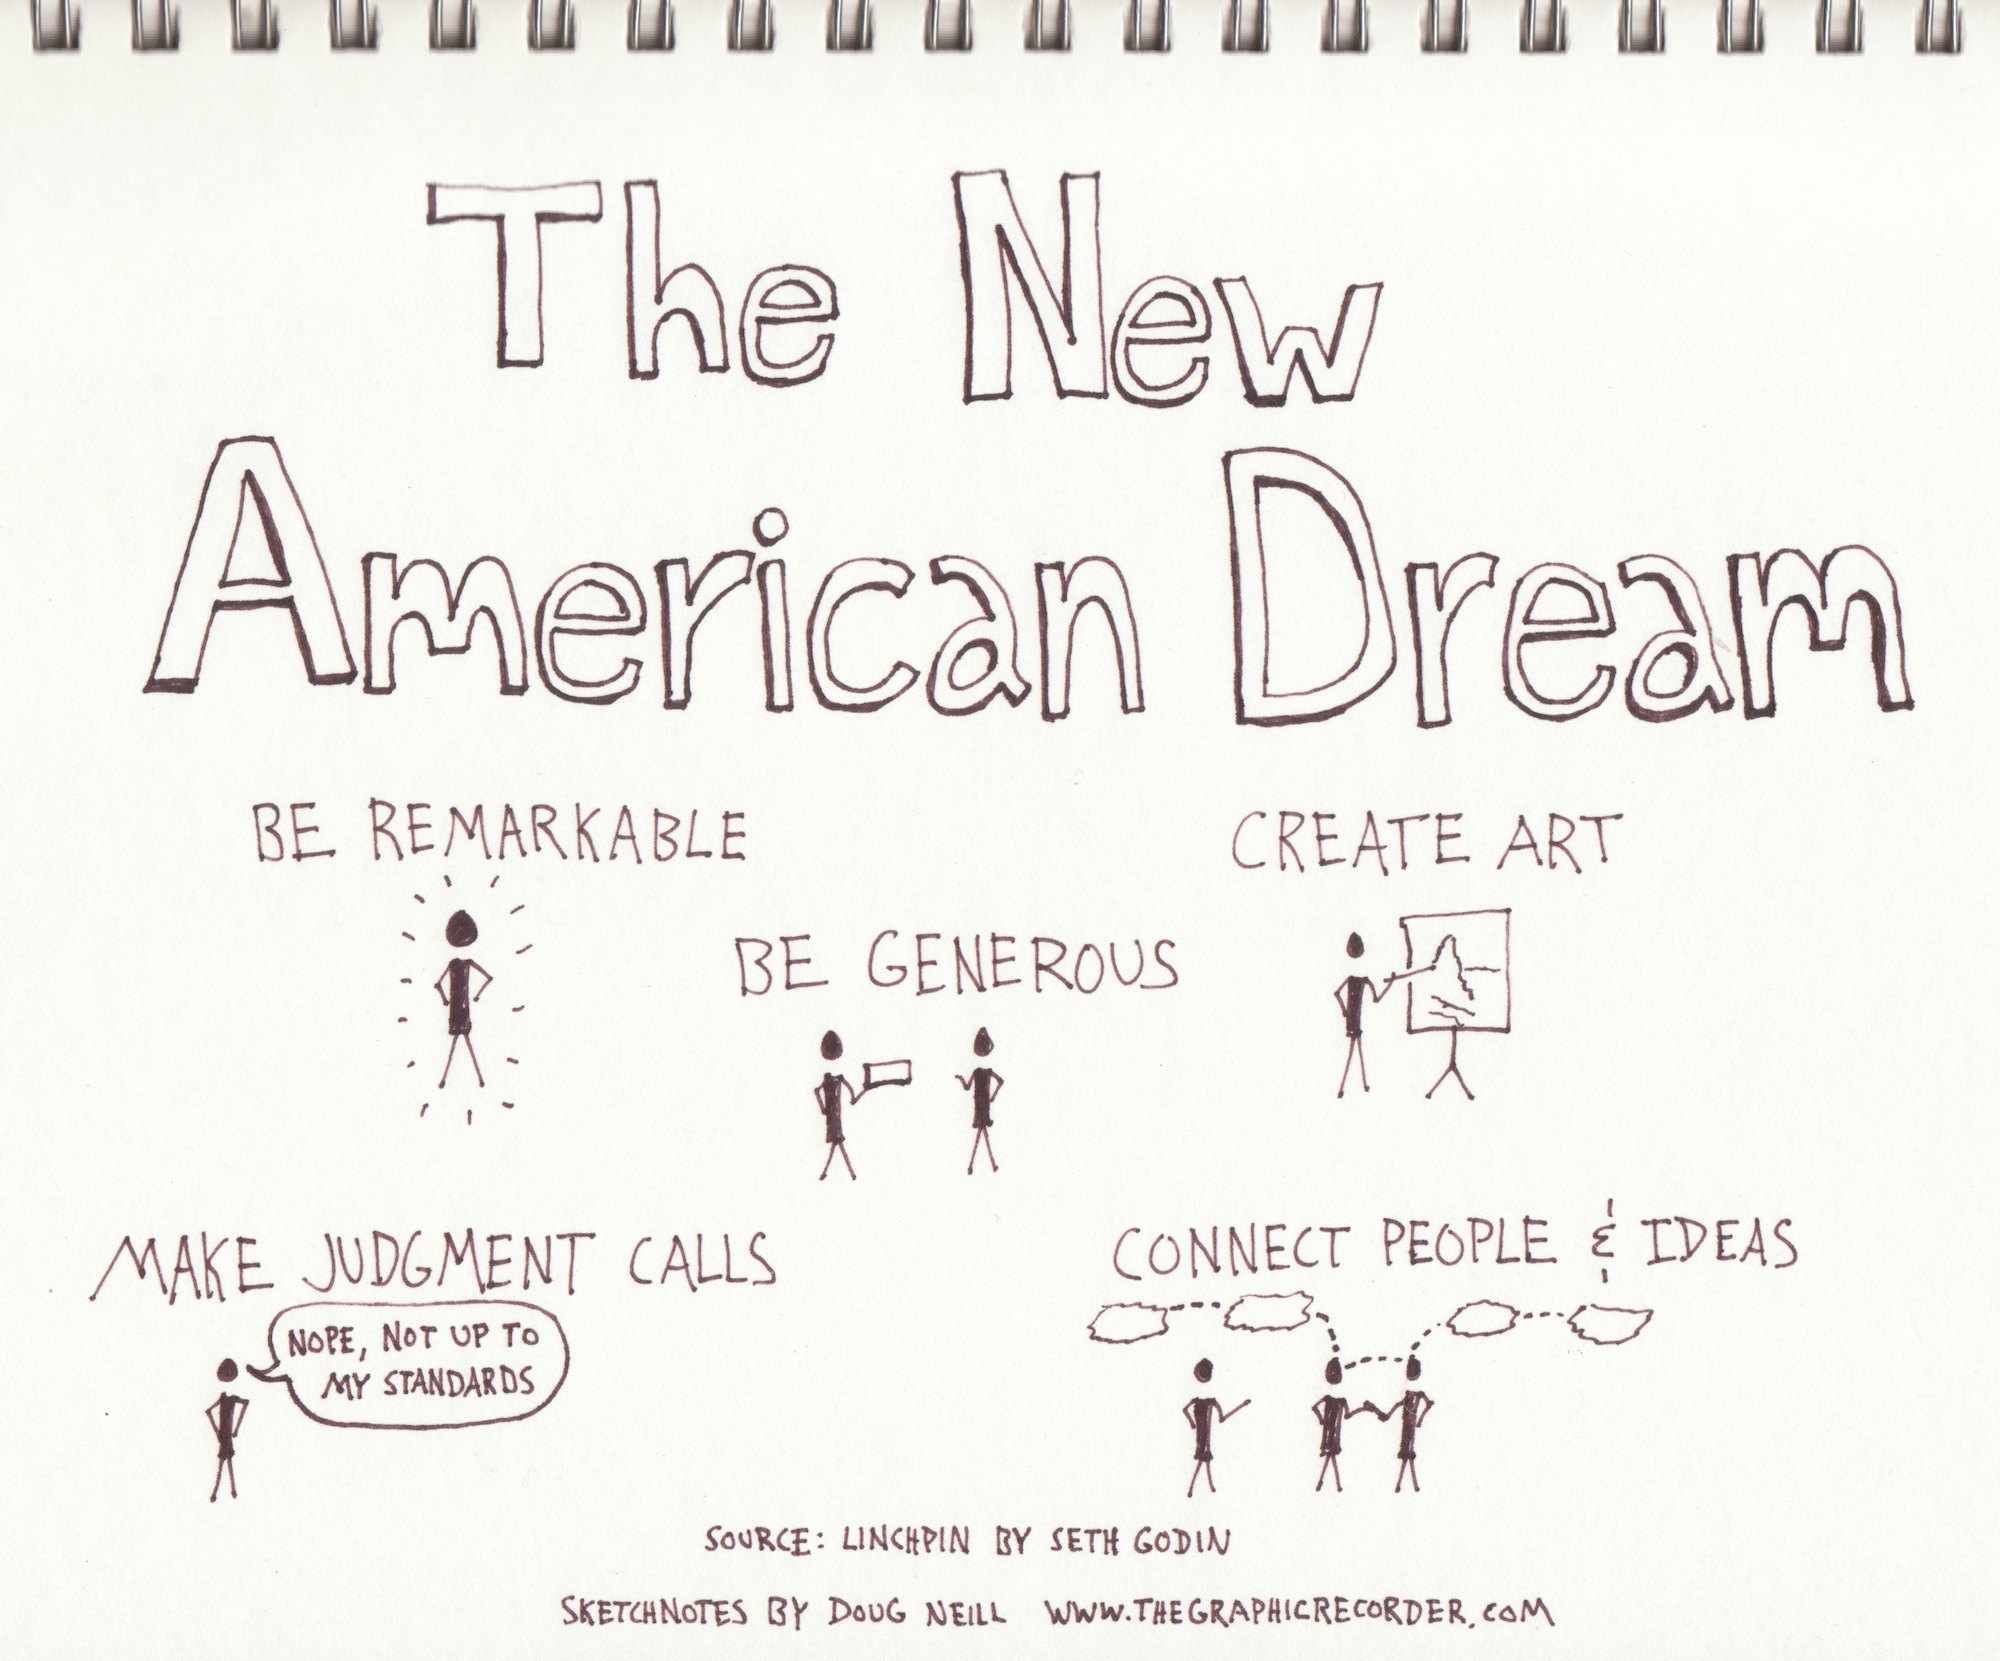 The New
American Dream
BE REMARKABLE
CREATE ART
BE GENEROUS
MAKE JUDGMENT CALLS
NOPE, NOT UP TO
MY STANDARDS
CONNECT PEOPLE & IDEAS
SOURCE: LINCHPIN BY SETH GODIN
SKETCHNOTES BY DOUG NEILL WWW.THEGRAPHICRECORDER.COM